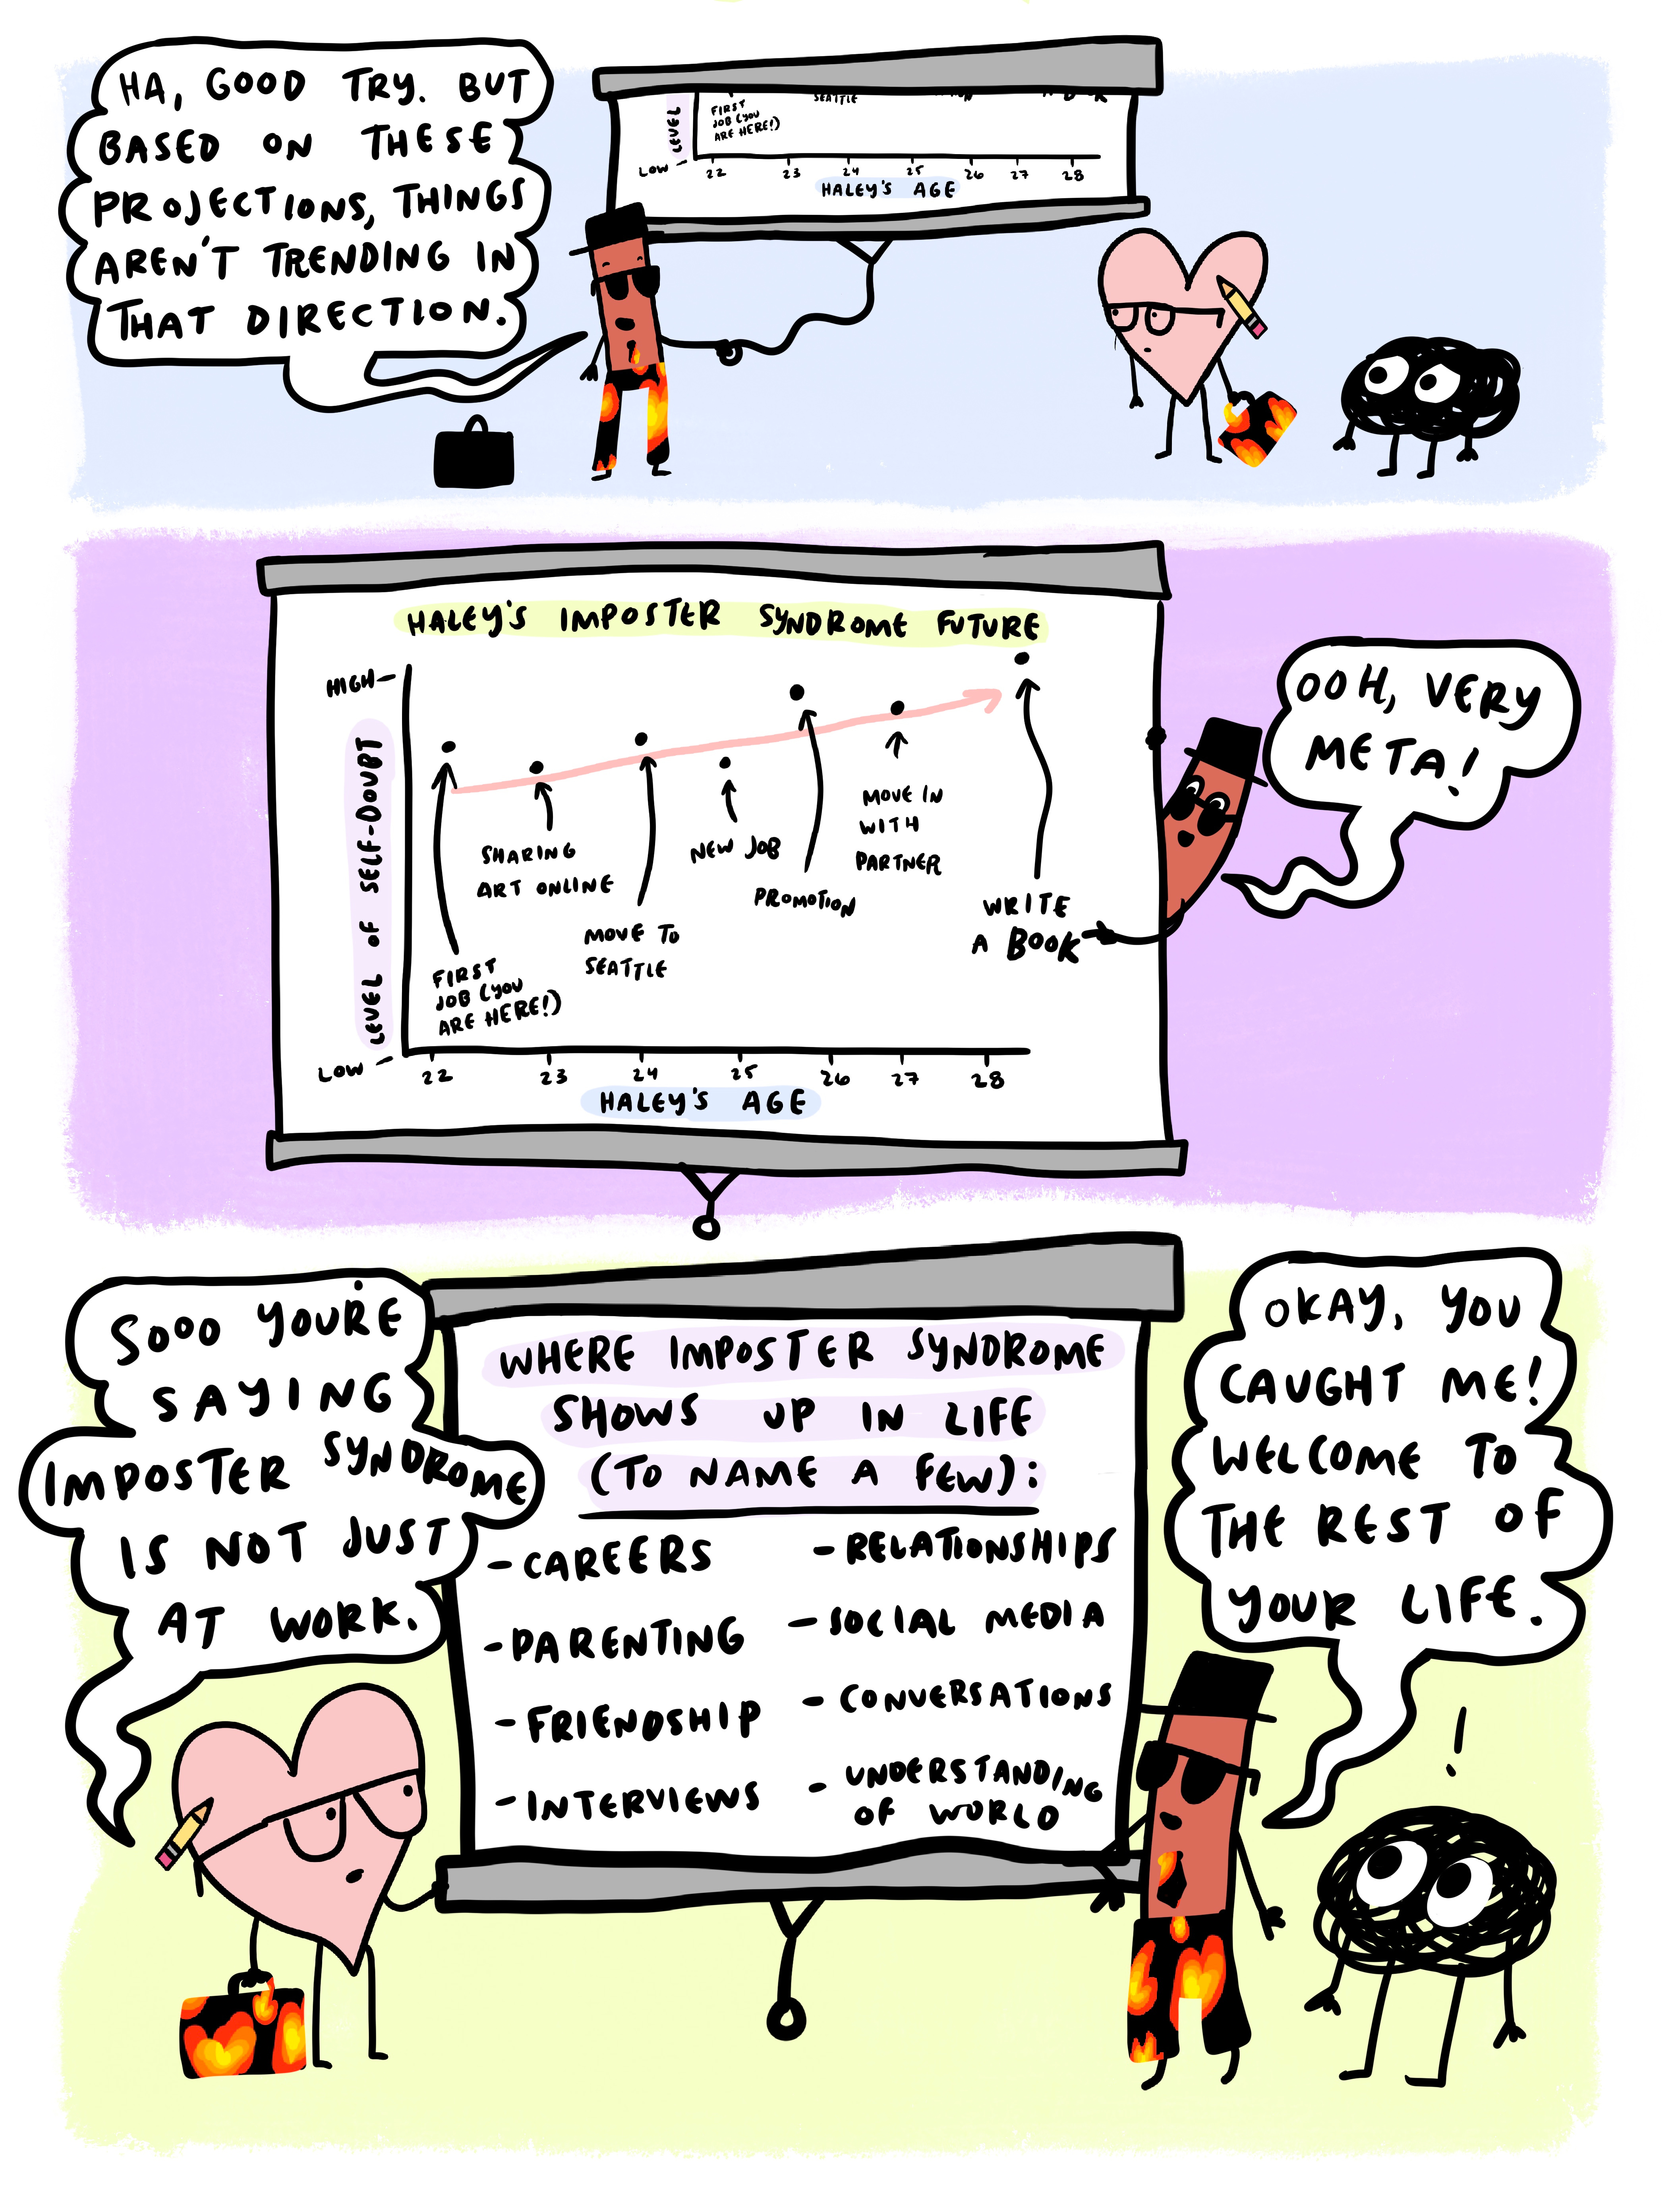 HA, GOOD TRY. BUT
BASED ON THESE
PROJECTIONS, THINGS
AREN'T TRENDING IN
THAT DIRECTION.
LEVEL
FIRST
JOB (YOU
ARE HERE!)
SEATTLE
LOW
22 23 24 25 26 27 28
HALEY'S AGE
HALEY'S IMPOSTER SYNDROME FUTURE
HIGH
LEVEL OF SELF-DOUBT
LOW
FIRST
JOB (YOU
ARE HERE!)
SHARING
ART ONLINE
MOVE TO
SEATTLE
NEW JOB
PROMOTION
MOVE IN
WITH
PARTNER
WRITE
A BOOK
22 23 24 25 26 27 28
HALEY'S AGE
OOH, VERY
META!
SOOO YOU'RE
SAYING
IMPOSTER SYNDROME
IS NOT JUST
AT WORK.
WHERE IMPOSTER SYNDROME
SHOWS UP IN LIFE
(TO NAME A FEW):
- CAREERS
- PARENTING
- FRIENDSHIP
- INTERVIEWS
- RELATIONSHIPS
- SOCIAL MEDIA
- CONVERSATIONS
- UNDERSTANDING
OF WORLD
OKAY, YOU
CAUGHT ME!
WELCOME TO
THE REST OF
YOUR LIFE.
!